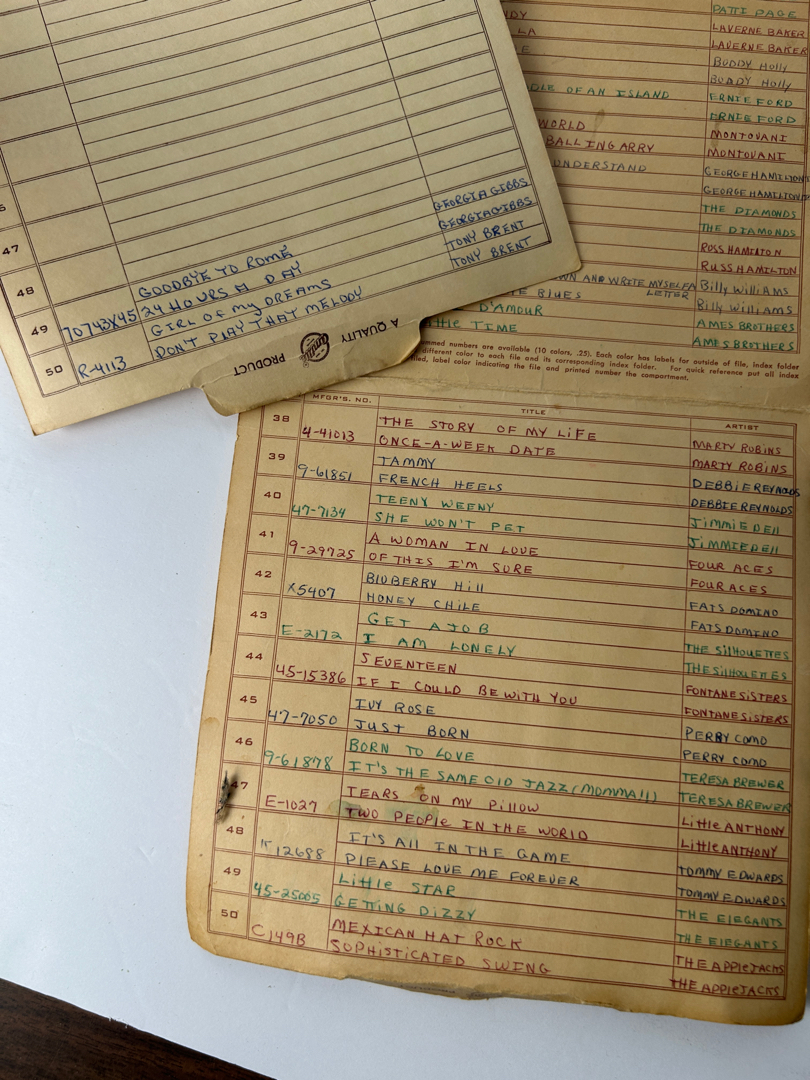 46
47
48
GOODBYE TO ROME GEORGIA GIBBS
49 70743X45 24 HOURS A DAY GEORGIA GIBBS
GIRL OF MY DREAMS TONY BRENT
50 R-4113 DON'T PLAY THAT MELODY TONY BRENT
A QUALITY PRODUCT
PATTI PAGE
LAVERNE BAKER
LA LAVERNE BAKER
BUDDY Holly
BUDDY Holly
OF AN ISLAND ERNIE FORD
ERNIE FORD
WORLD MONTOVANI
BALLING ARRY MONTOVANI
UNDERSTAND GEORGE HAMILTON
GEORGE HAMILTON
THE DIAMONDS
THE DIAMONDS
ROSS HAMILTON
RUSS HAMILTON
AND WRITE MYSELF A LETTER Billy WilliAMS
BLUES Billy WilliAMS
D'AMOUR AMES BROTHERS
little TIME AMES BROTHERS
numbers are available (10 colors, .25). Each color has labels for outside of file, index folder
different color to each file and its corresponding index folder. For quick reference put all index
label color indicating the file and printed number the compartment.
MFGR'S. NO. TITLE ARTIST
38 THE STORY OF MY LiFE MARTY ROBINS
4-41013 ONCE-A-WEEK DATE MARTY ROBINS
39 TAMMY DEBBiE REYNOLDS
9-61851 FRENCH HEELS DEBBIE REYNOLDS
40 TEENY WEENY JiMMIE DEll
47-7134 SHE WON'T PET JiMMIE DEll
41 A WOMAN IN LOVE FOUR ACES
9-29725 OF THIS I'M SURE FOUR ACES
42 BIUBERRY Hill FATS DOMINO
X5407 HONEY CHILE FATS DOMINO
43 GET A JOB THE SilHOUETTES
E-2172 I AM LONELY THE SilHOUETTES
44 SEVENTEEN FONTANE SiSTERS
45-15386 IF I COULD BE WITH YOU FONTANE SISTERS
45 IVY ROSE PERRY COMO
47-7050 JUST BORN PERRY COMO
46 BORN TO LOVE TERESA BREWER
9-61878 IT'S THE SAME OlD JAZZ (MOMMA!!) TERESA BREWER
47 TEARS ON MY PillOW LittlE ANTHONY
E-1027 TWO PEOPLE IN THE WORLD LittlE ANTHONY
48 IT'S All IN THE GAME TOMMY EDWARDS
K12688 PLEASE LOVE ME FOREVER TOMMY EDWARDS
49 LittlE STAR THE ElEGANTS
45-25005 GETTING DiZZY THE ElEGANTS
50 MEXICAN HAT ROCK THE APPlEJACKS
C149B SOPHISTICATED SWING THE APPlEJACKS